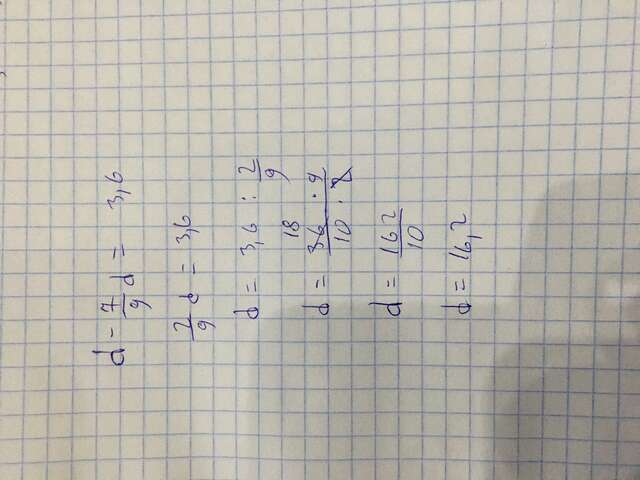 d - 7/9 d = 3,6
2/9 d = 3,6
d = 3,6 : 2/9
18
d = 36 · 9 / 10 · 2
d = 162/10
d = 16,2